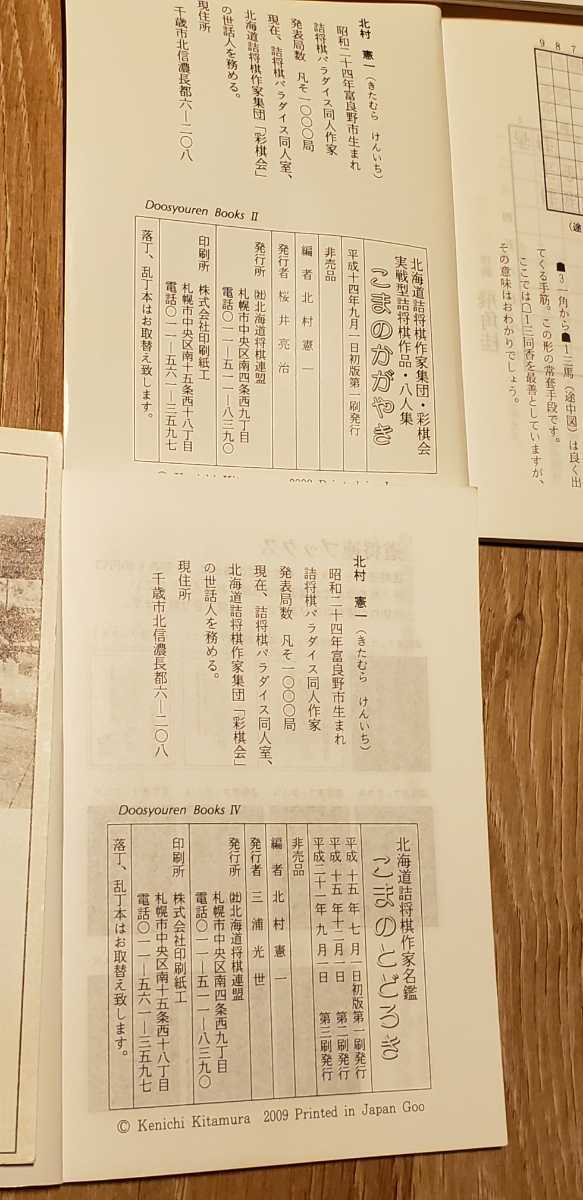 北村　憲一（きたむら　けんいち）
昭和二十四年富良野市生まれ
詰将棋パラダイス同人作家
発表局数　凡そ一〇〇〇局
現在、詰将棋パラダイス同人室、
北海道詰将棋作家集団「彩棋会」
の世話人を務める。
現住所
千歳市北信濃長都六―二〇八
Doosyouren Books II
北海道詰将棋作家集団・彩棋会
実戦型詰将棋作品・八人集
こまのかがやき
平成十四年九月一日初版第一刷発行
非売品
編者　北村憲一
発行者　桜井亮治
発行所　㈳北海道将棋連盟
札幌市中央区南四条西九丁目
電話〇一一―五一一―八三九〇
印刷所　株式会社印刷紙工
札幌市中央区南十五条西十八丁目
電話〇一一―五六一―三五九七
落丁、乱丁本はお取替え致します。
9 8 7
（途
☗3一角から☗1三馬（途中図）は良く出
てくる手筋。この形の常套手段です。
ここでは☖1三同香を最善としていますが、
その意味はおわかりでしょう。
北村　憲一（きたむら　けんいち）
昭和二十四年富良野市生まれ
詰将棋パラダイス同人作家
発表局数　凡そ一〇〇〇局
現在、詰将棋パラダイス同人室、
北海道詰将棋作家集団「彩棋会」
の世話人を務める。
現住所
千歳市北信濃長都六―二〇八
Doosyouren Books IV
北海道詰将棋作家名鑑
こまのとどろき
平成十五年七月一日初版第一刷発行
平成十五年十二月一日　第二刷発行
平成二十一年九月一日　第三刷発行
非売品
編者　北村憲一
発行者　三浦光世
発行所　㈳北海道将棋連盟
札幌市中央区南四条西九丁目
電話〇一一―五一一―八三九〇
印刷所　株式会社印刷紙工
札幌市中央区南十五条西十八丁目
電話〇一一―五六一―三五九七
落丁、乱丁本はお取替え致します。
© Kenichi Kitamura 2009 Printed in Japan Goo